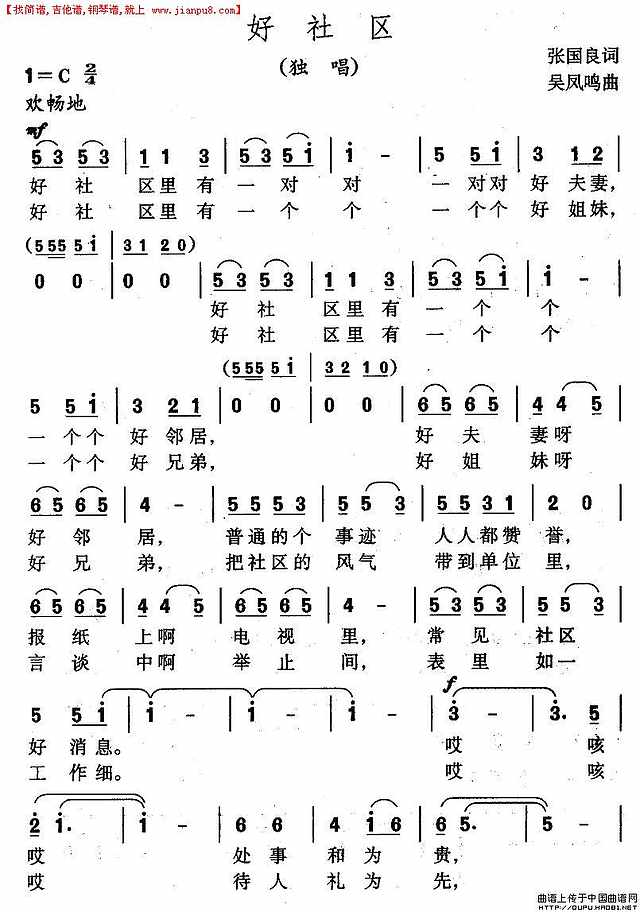 【找简谱,吉他谱,钢琴谱,就上 www.jianpu8.com】
好社区
(独唱)
张国良词
吴凤鸣曲
1=C 2/4
欢畅地
mf
5 3 5 3 | 1 1 3 | 5 3 5 i | i - | 5 5 i | 3 1 2 |
好 社 区里有 一对 对 一 对对 好 夫妻,
好 社 区里有 一个 个 一 个个 好 姐妹,
(5 55 5 i | 3 1 2 0)
0 0 | 0 0 | 5 3 5 3 | 1 1 3 | 5 3 5 i | i - |
好 社 区里 有 一 个 个
好 社 区里 有 一 个 个
(5 55 5 i | 3 2 1 0)
5 5 i | 3 2 1 | 0 0 | 0 0 | 6 5 6 5 | 4 4 5 |
一 个个 好 邻居, 好 夫 妻呀
一 个个 好 兄弟, 好 姐 妹呀
6 5 6 5 | 4 - | 5 5 5 3 | 5 5 3 | 5 5 3 1 | 2 0 |
好 邻 居, 普通的个 事迹 人人都赞 誉,
好 兄 弟, 把社区的 风气 带到单位 里,
6 5 6 5 | 4 4 5 | 6 5 6 5 | 4 - | 5 3 5 3 | 1 1 3 |
报 纸 上啊 电 视 里, 常 见 社区
言 谈 中啊 举 止 间, 表 里 如一
f
5 5 i | i - | i - | i - | 3 - | 3. 5 |
好 消息。 哎 咳
工 作细。 哎 咳
2 i. | i - | 6 6 6 | 4 i 6 | 6 5. | 5 - |
哎 处 事 和 为 贵,
哎 待 人 礼 为 先,
曲谱上传于中国曲谱网
http://QUPU.HAO81.NET